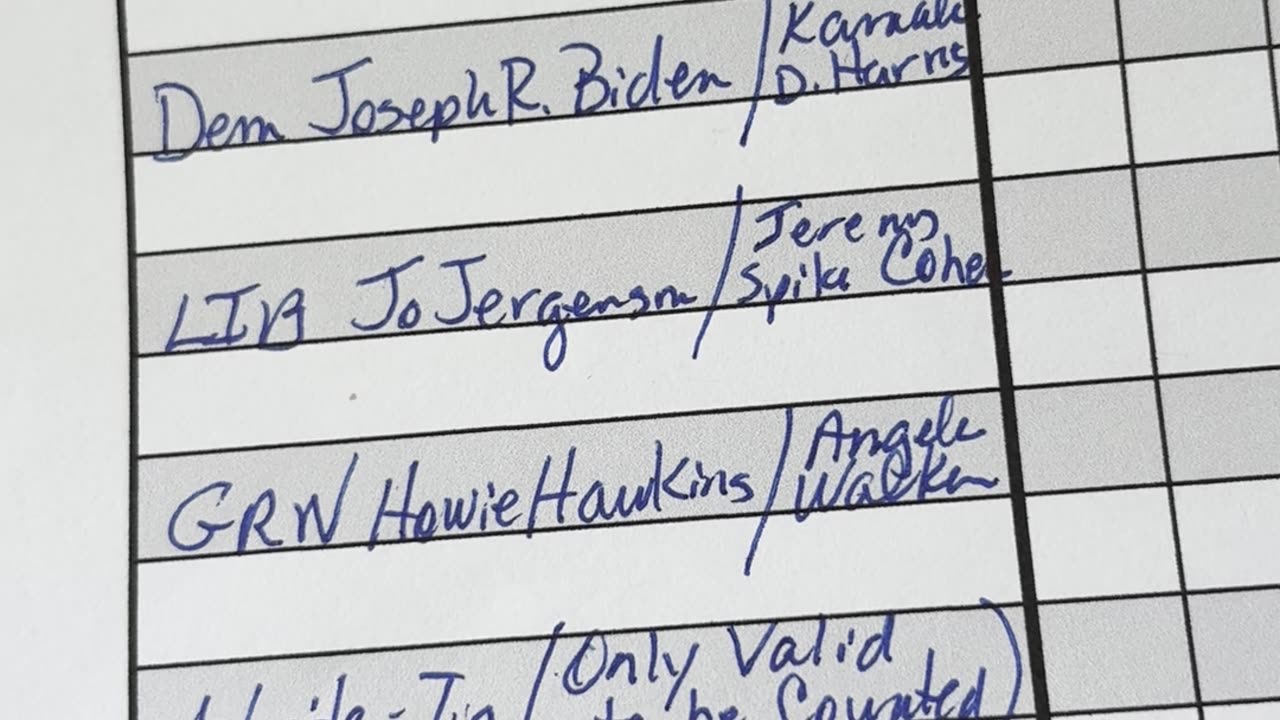 Dem Joseph R. Biden / Kamala
D. Harris
LIB Jo Jergensen / Jeremy
Spike Cohen
GRN Howie Hawkins / Angela
Walker
Write-In / (Only Valid
to be Counted)